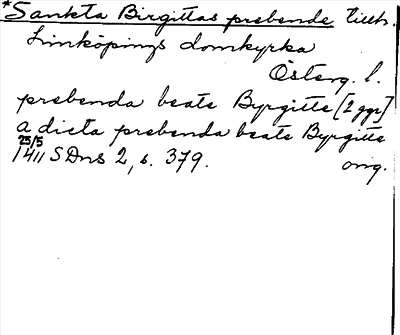 *Sankta Birgittas prebende tillh.
Linköpings domkyrka
Österg. l.
prebenda beate Byrgitte [2 ggr]
a dicta prebenda beate Byrgitte
25/5 1411 SDns 2, s. 379. orig.